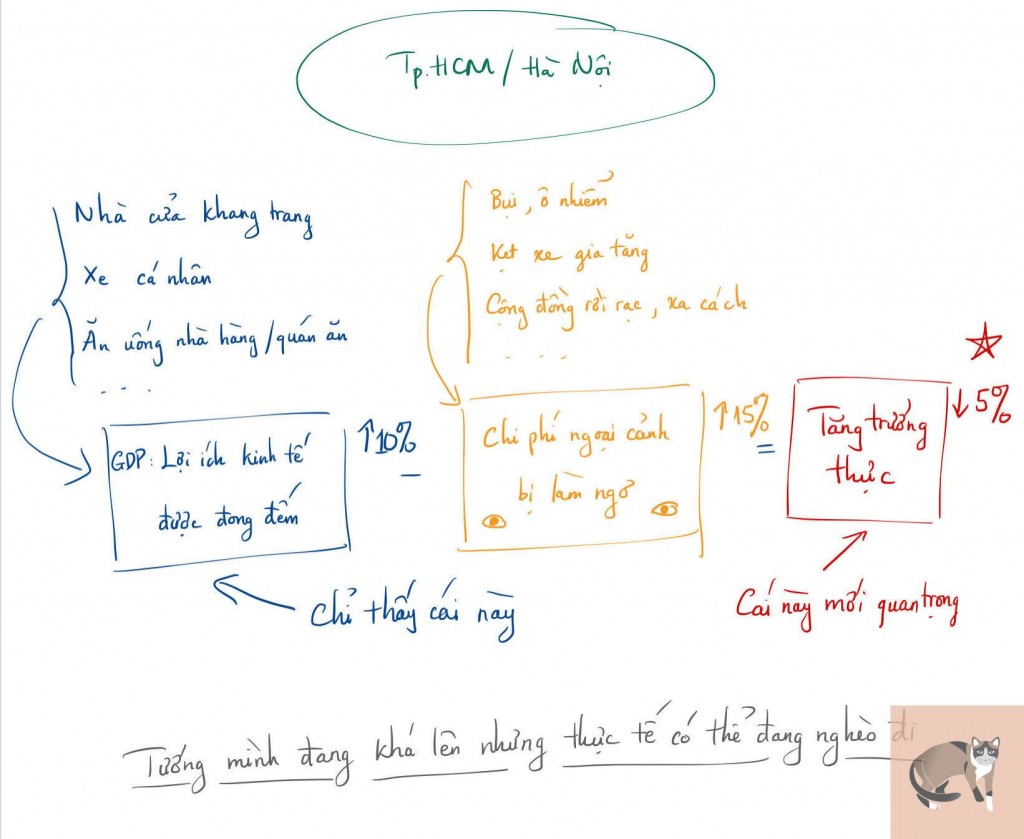 Tp.HCM / Hà Nội
Nhà cửa khang trang
Xe cá nhân
Ăn uống nhà hàng/quán ăn
. . .
GDP: Lợi ích kinh tế
được đong đếm
↑10%
Chỉ thấy cái này
Bụi, ô nhiễm
Kẹt xe gia tăng
Cộng đồng rời rạc, xa cách
. . . .
Chi phí ngoại cảnh
bị làm ngơ
↑15%
Tăng trưởng
thực
↓5%
Cái này mới quan trọng
Tưởng mình đang khá lên nhưng thực tế có thể đang nghèo đi